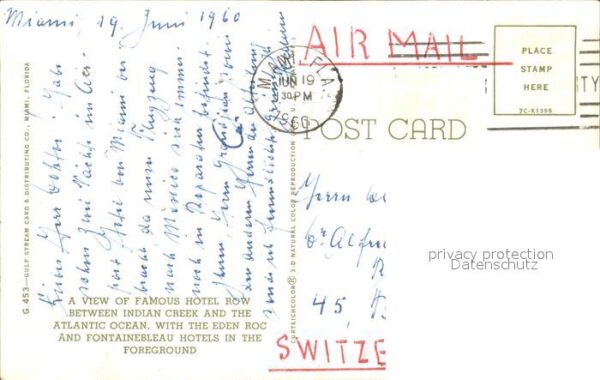 Miami, 19. Juni 1960
Lieber Herr Doktor! Habe
schon zwei Nächte im Air-
port Hotel von Miami ver-
bracht, da mein Flugzeug
nach Mexico sich immer
noch in Reparatur befindet.
Ihnen, Herrn
und anderen Herren der Abteilung
sende ich freundliche
AIR MAIL
MIAMI, FLA.
JUN 19
30 PM
1960
PLACE
STAMP
HERE
7C-K1396
POST CARD
Herrn
Dr. Alfre
45,
SWITZE
privacy protection
Datenschutz
G 453—GULF STREAM CARD & DISTRIBUTING CO., MIAMI, FLORIDA
CURTEICHCOLOR® 3-D NATURAL COLOR REPRODUCTION
A VIEW OF FAMOUS HOTEL ROW
BETWEEN INDIAN CREEK AND THE
ATLANTIC OCEAN, WITH THE EDEN ROC
AND FONTAINEBLEAU HOTELS IN THE
FOREGROUND